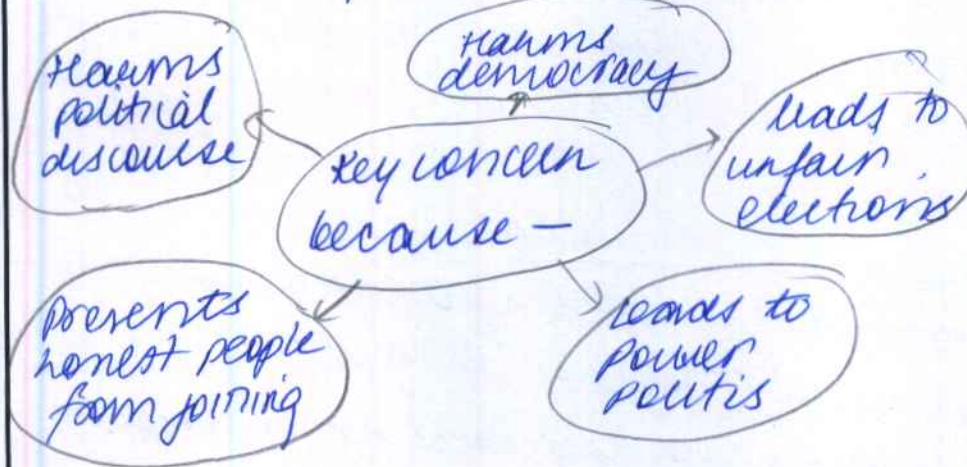 Harms
political
discourse
Harms
democracy
leads to
unfair
elections
Key concern
because –
Prevents
honest people
from joining
leads to
power
politis